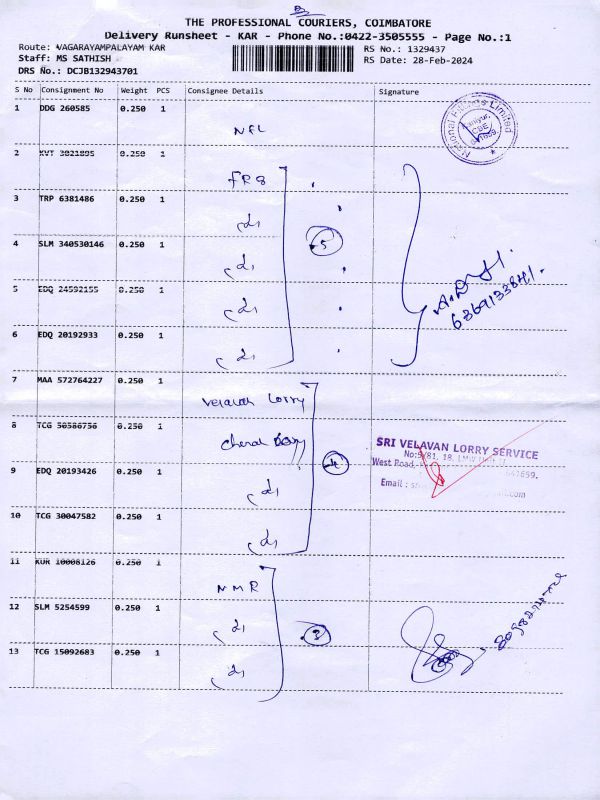 THE PROFESSIONAL COURIERS, COIMBATORE
Delivery Runsheet - KAR - Phone No.:0422-3505555 - Page No.:1
Route: VAGARAYAMPALAYAM KAR
RS No.: 1329437
Staff: MS SATHISH
RS Date: 28-Feb-2024
DRS No.: DCJB132943701
S No Consignment No Weight PCS Consignee Details Signature
1 DDG 260585 0.250 1
NFL
National Limited
CBE
2 KVT 3021895 0.250 1
FRB
3 TRP 6381486 0.250 1
5
4 SLM 340530146 0.250 1
5 EDQ 24592155 0.250 1
6 EDQ 20192933 0.250 1
7 MAA 572764227 0.250 1
Velavan Lorry
8 TCG 50586756 0.250 1
SRI VELAVAN LORRY SERVICE
West Road
Email :
9 EDQ 20193426 0.250 1
4
10 TCG 30047582 0.250 1
11 KUR 10008126 0.250 1
NMR
12 SLM 5254599 0.250 1
3
13 TCG 15092683 0.250 1